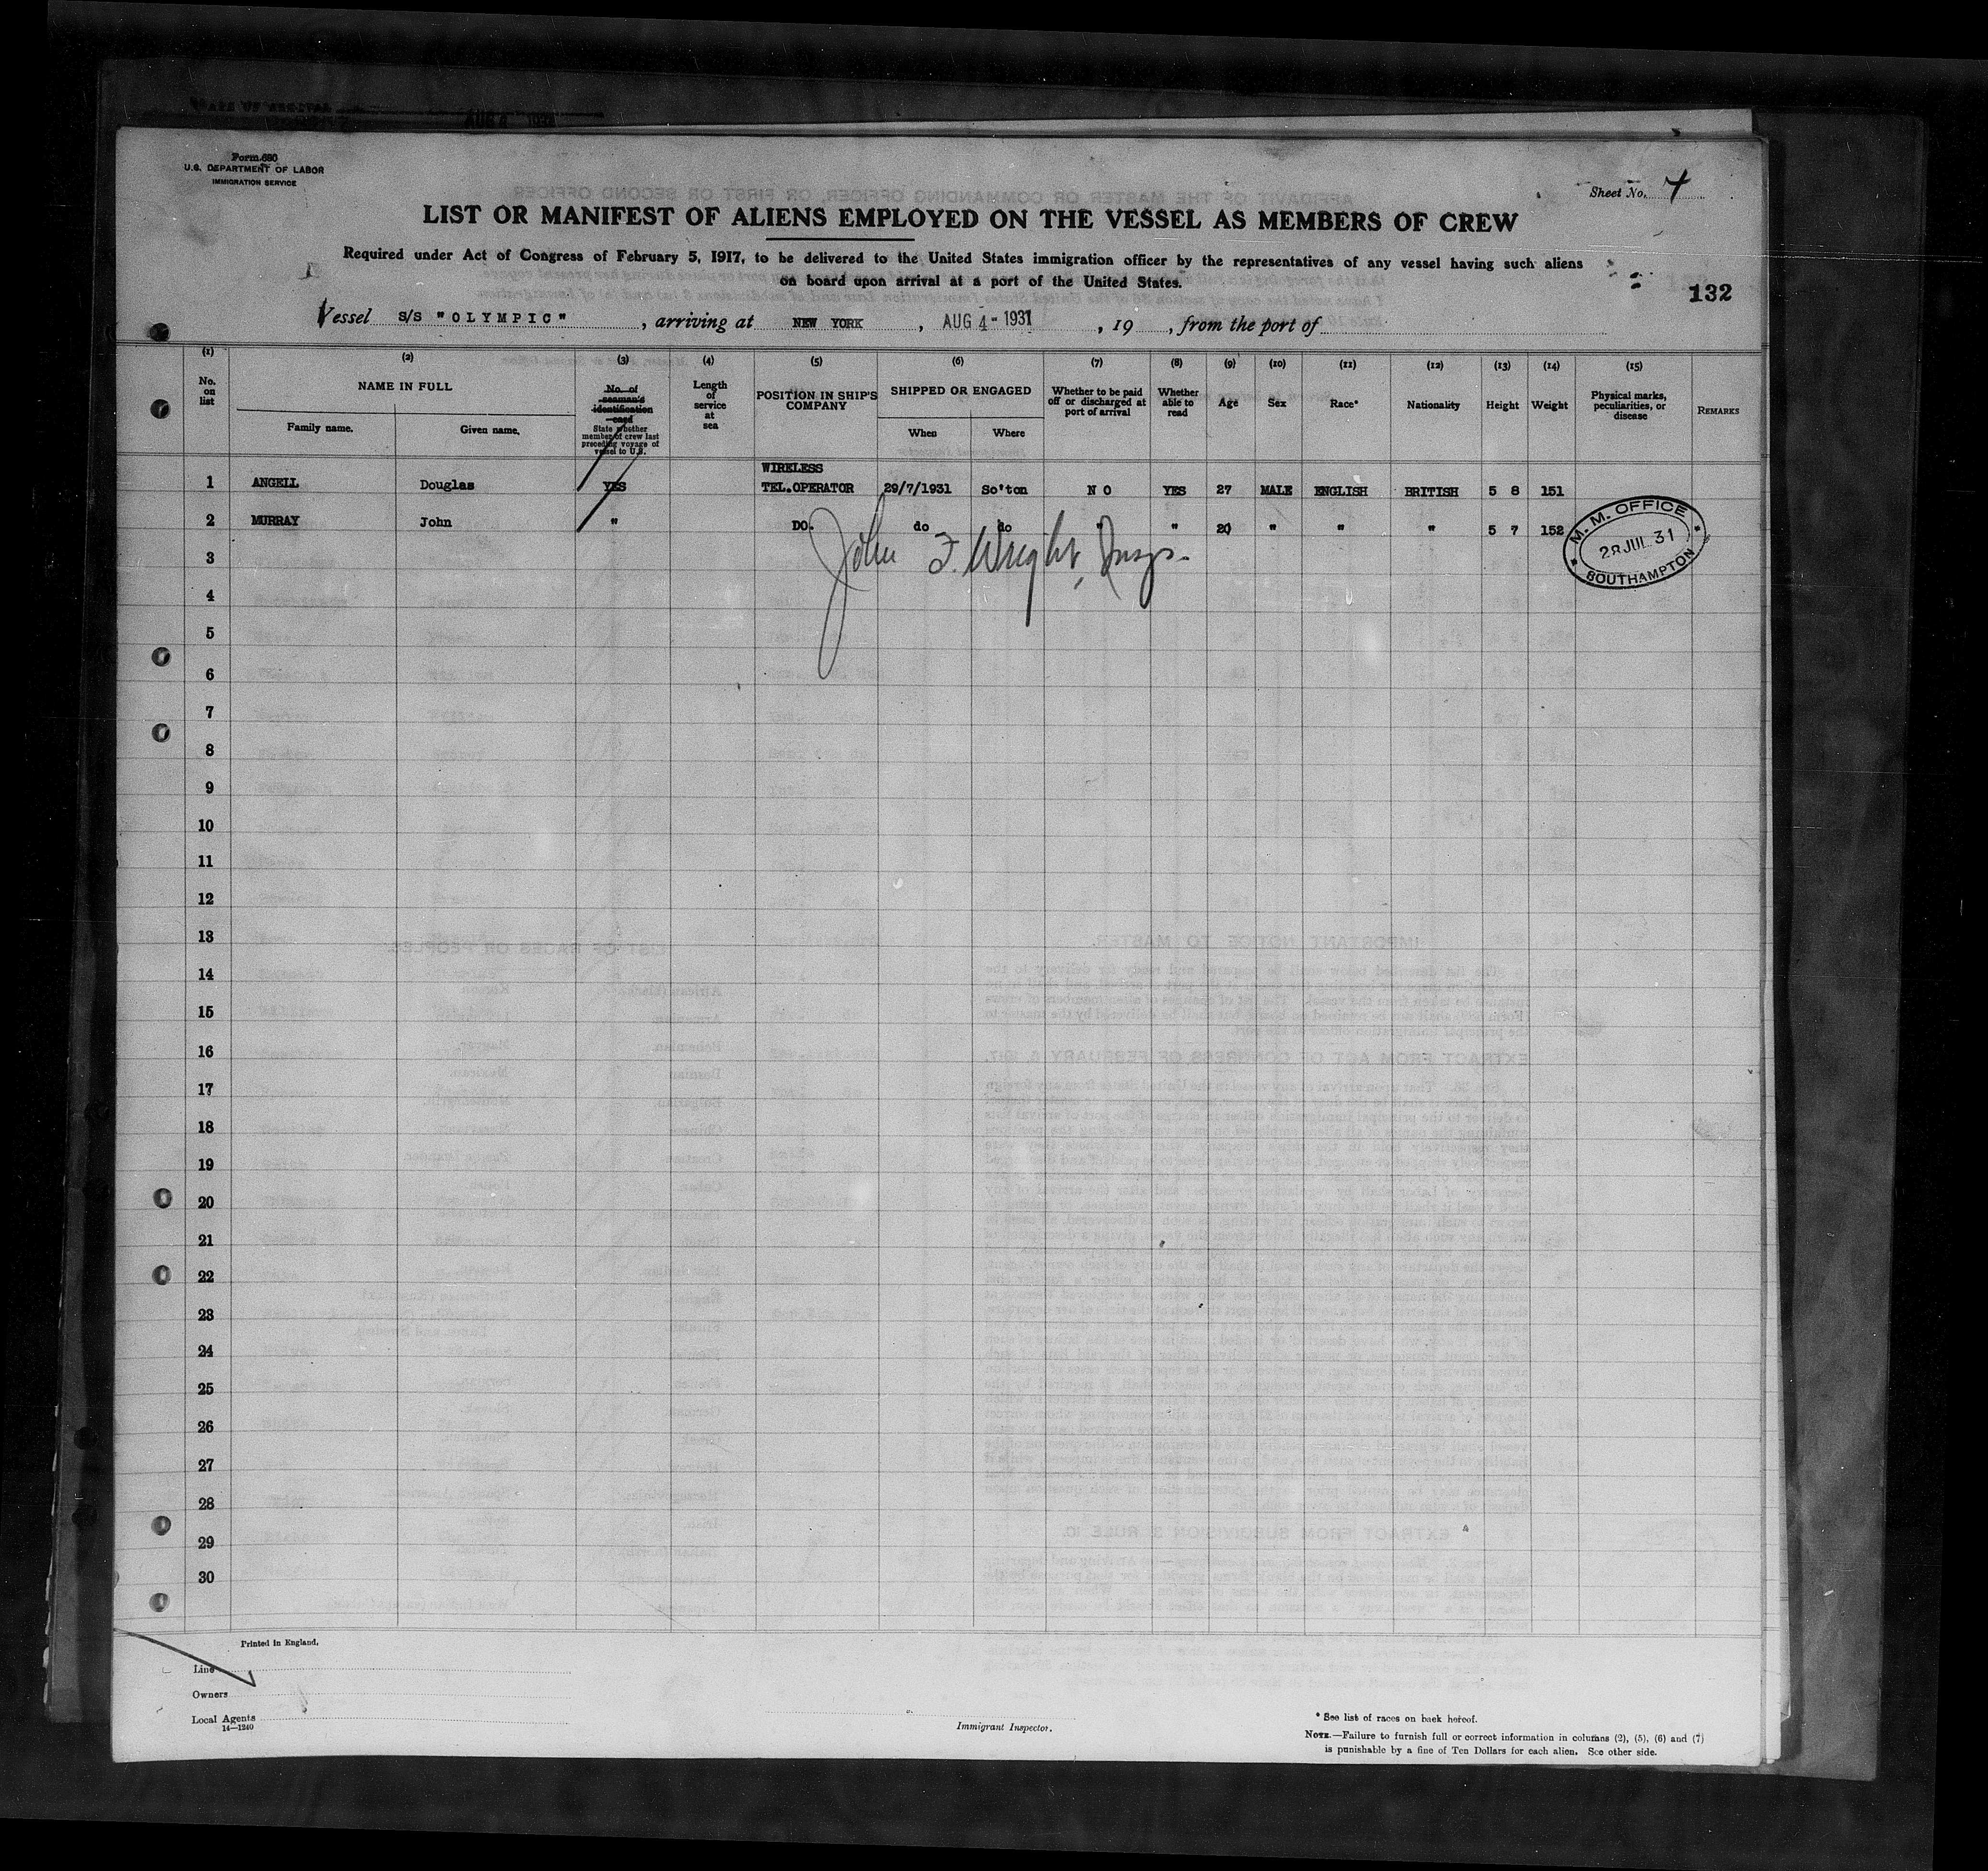 Form 680
U.S. DEPARTMENT OF LABOR
IMMIGRATION SERVICE
Sheet No.
LIST OR MANIFEST OF ALIENS EMPLOYED ON THE VESSEL AS MEMBERS OF CREW
Required under Act of Congress of February 5, 1917, to be delivered to the United States immigration officer by the representatives of any vessel having such aliens
on board upon arrival at a port of the United States.
132
Vessel S/S "OLYMPIC", arriving at NEW YORK, AUG 4-1931, 19, from the port of
(1) (2) (3) (4) (5) (6) (7) (8) (9) (10) (11) (12) (13) (14) (15)
No. on list
NAME IN FULL
Family name. Given name.
No. of seaman's identification card
State whether member of crew last preceding voyage of vessel to U.S.
Length of service at sea
POSITION IN SHIP'S COMPANY
SHIPPED OR ENGAGED
When Where
Whether to be paid off or discharged at port of arrival
Whether able to read
Age
Sex
Race*
Nationality
Height
Weight
Physical marks, peculiarities, or disease
REMARKS
1 ANGELL Douglas YES WIRELESS TEL.OPERATOR 29/7/1931 So'ton N O YES 27 MALE ENGLISH BRITISH 5 8 151
2 MURRAY John " DO. do do " " 20 " " " 5 7 152
M. M. OFFICE
28 JUL 31
SOUTHAMPTON
John F. Wright, Insp.
3
4
5
6
7
8
9
10
11
12
13
14
15
16
17
18
19
20
21
22
23
24
25
26
27
28
29
30
Printed in England.
Line
Owners
Local Agents
14—1240
Immigrant Inspector.
* See list of races on back hereof.
NOTE.—Failure to furnish full or correct information in columns (2), (5), (6) and (7)
is punishable by a fine of Ten Dollars for each alien. See other side.